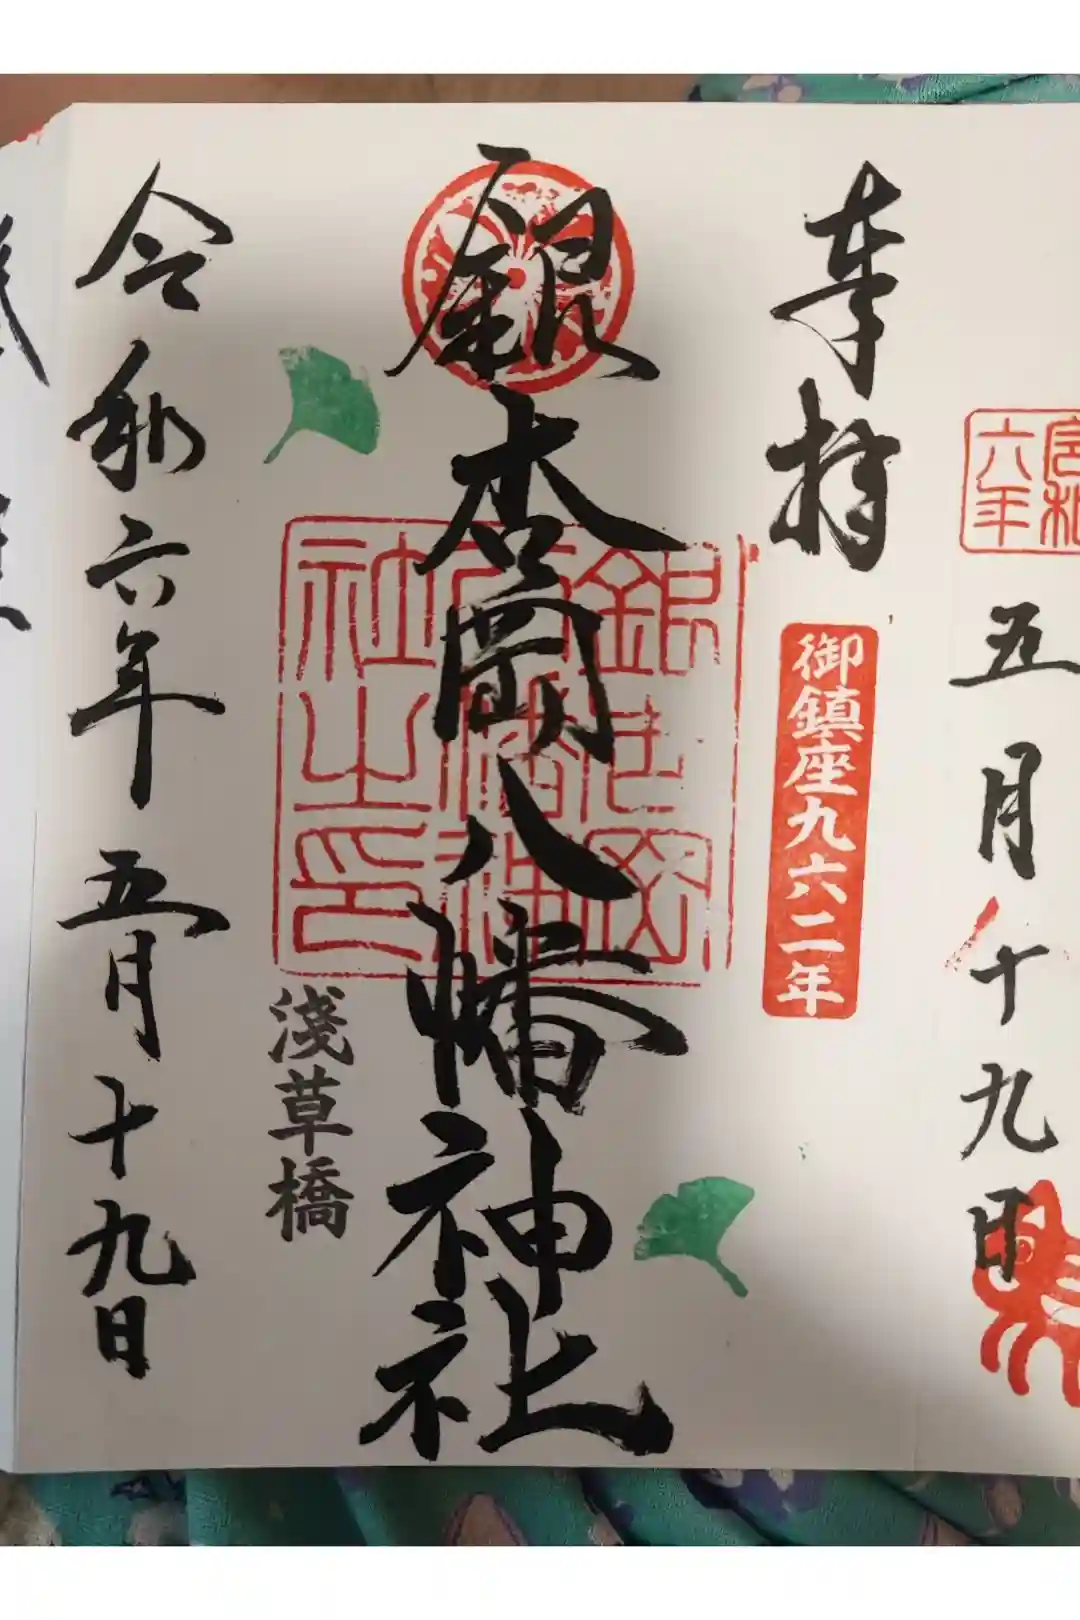 六年
五月十九日
奉拝
御鎮座九六二年
銀杏岡八幡神社
銀杏岡八幡神社之印
淺草橋
令和六年五月十九日